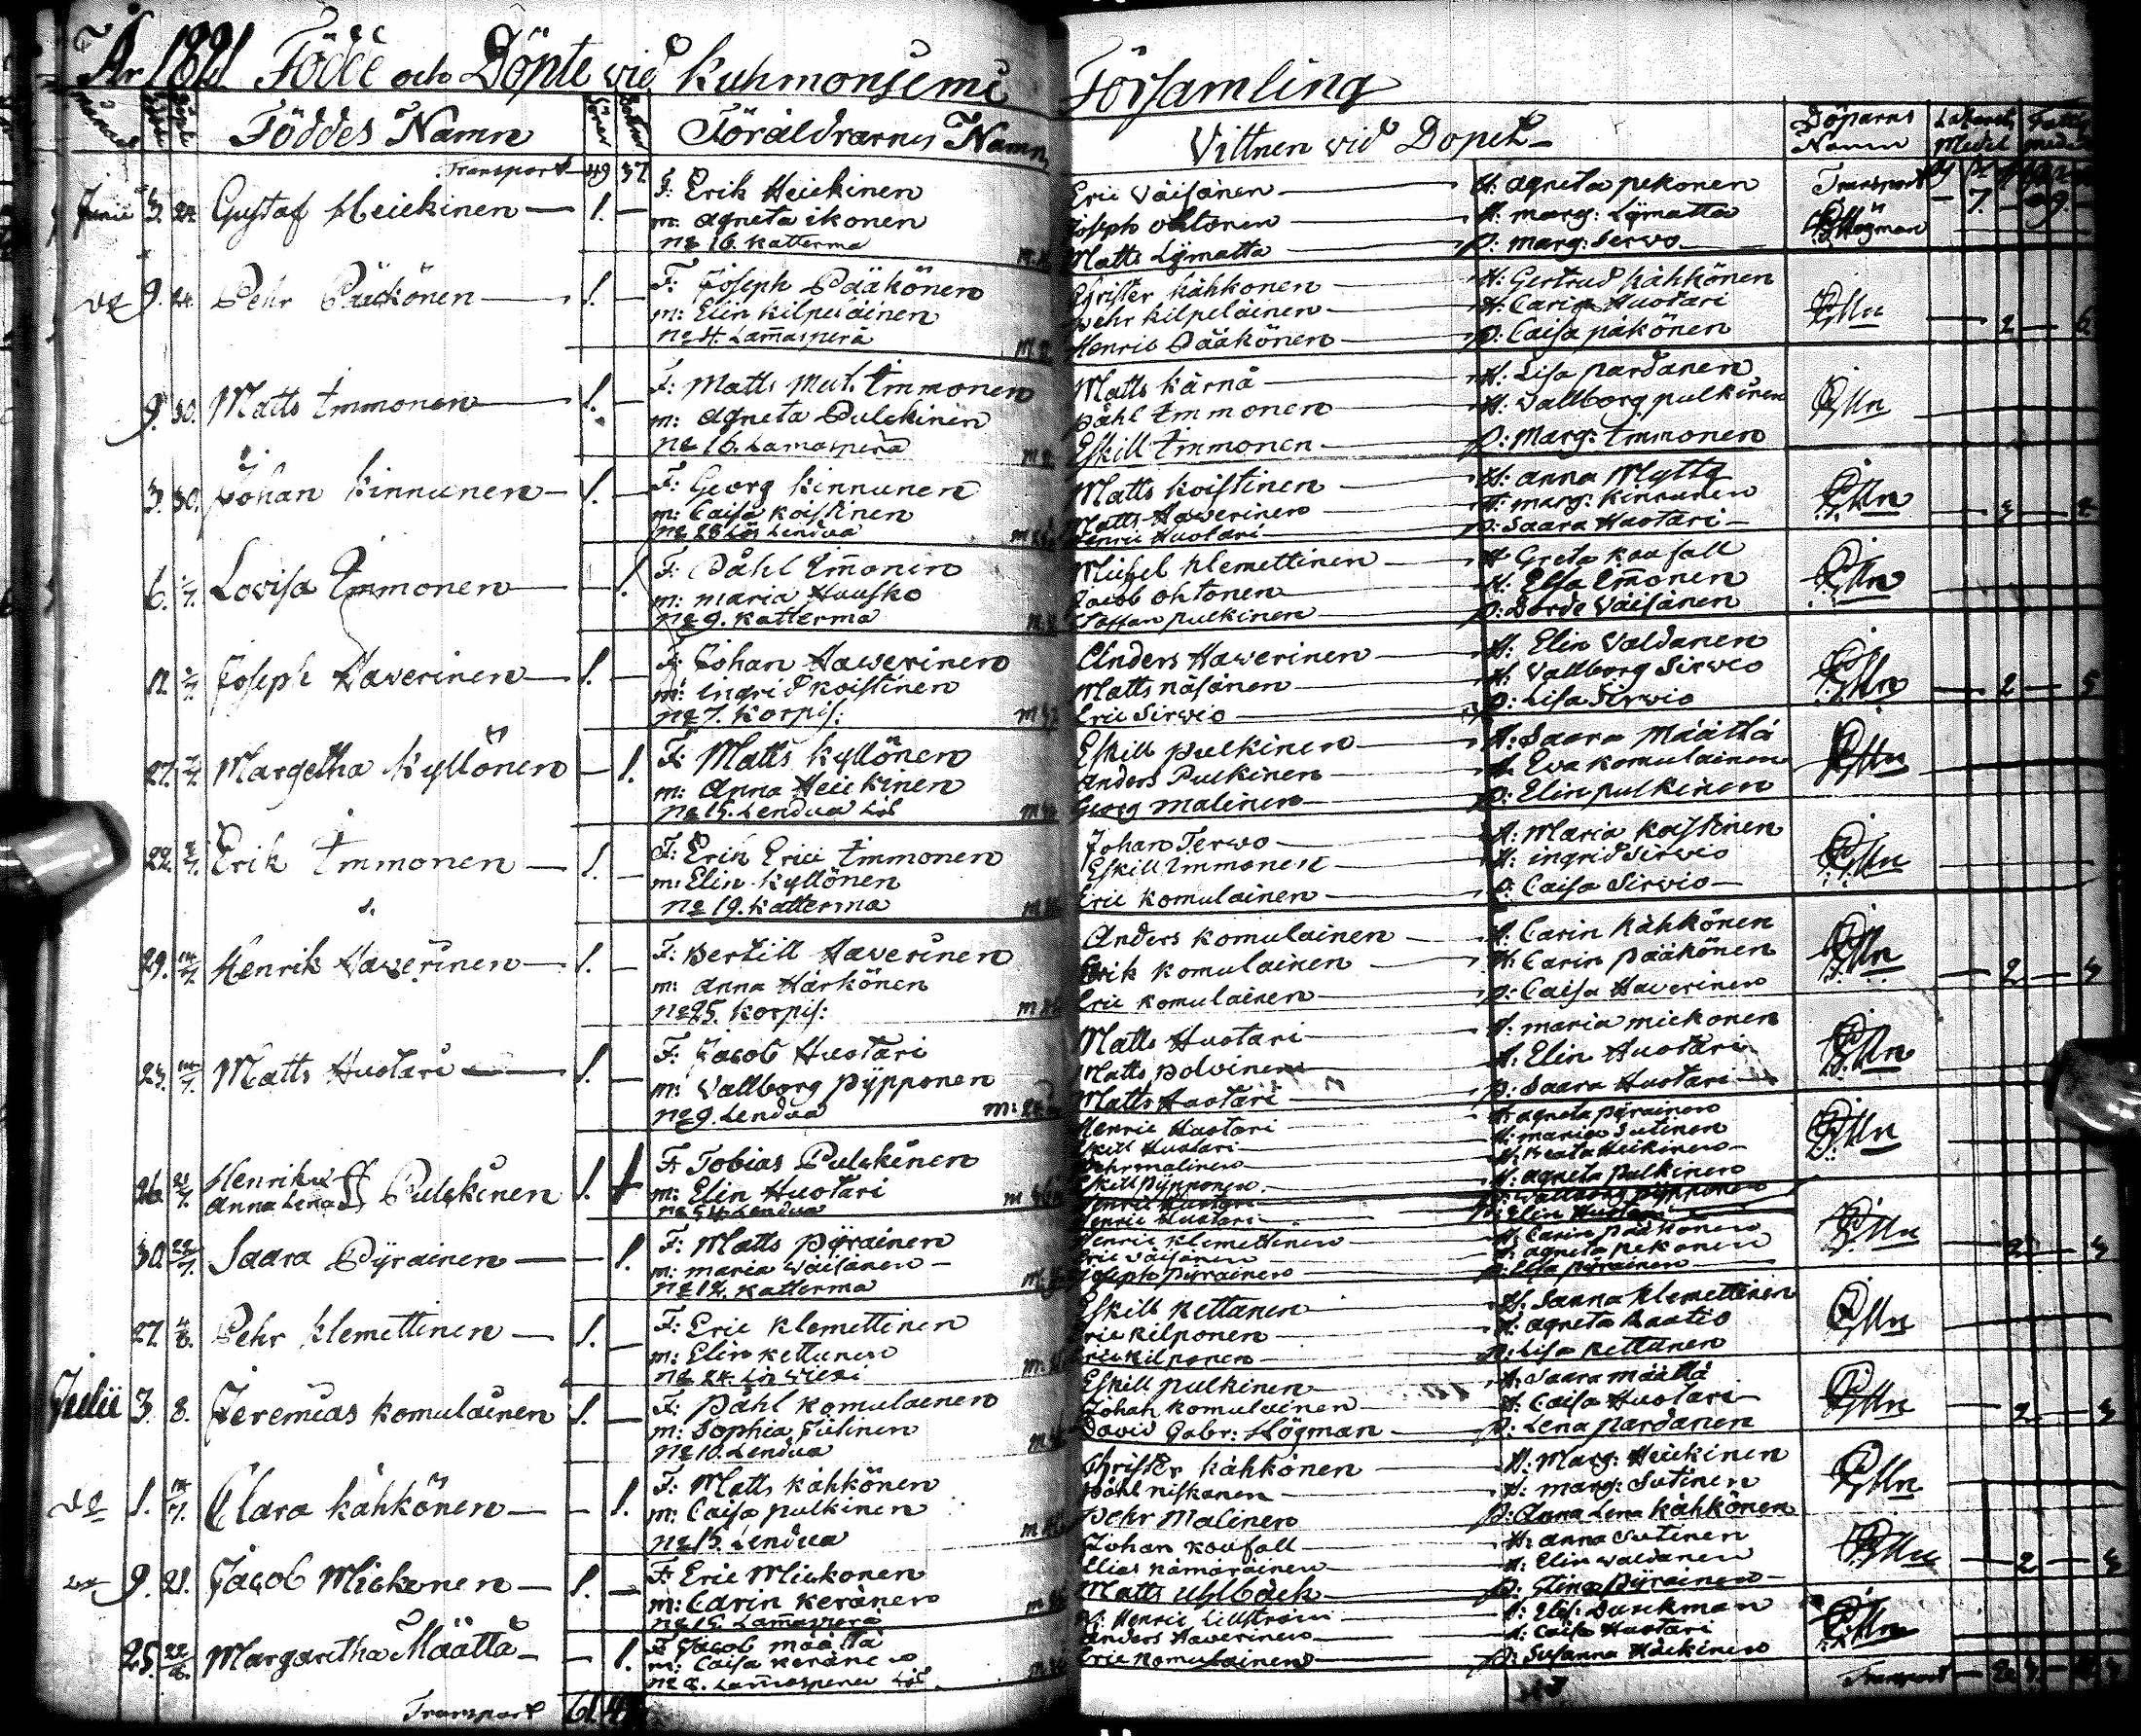 År 1821 Födde och Döpte vid Kuhmoniemi Församling
Föddes Namn Föräldrarnes Namn Vittnen vid Dopet Döparns Namn
Transport 49 37.
Junii 3. 24. Gustaf Heickinen 1. —
F: Erik Heickinen
m: Agneta ikonen
No 16. Katterma
Eric Väisänen — H: Agneta pekonen
Joseph ohtonen — H: marg: Lÿmatta
Matts Lÿmatta — P: marg: Servo
Transport 7. 9.
Högman
9. 24. Pehr Pääkönen 1. —
F: Joseph Pääkönen
m: Elin Kilpeläinen
No 4. Lam̄asperä
Christer Kähkonen — H: Gertrud Kähkönen
Pehr Kilpeläinen — H: Carin Huotari
Henric Pääkönen — P: Caisa päkönen
2 6
9. 30. Matts Immonen 1.
F: Matts Mats. Immonen
m: Agneta Pulckinen
No 16. Lamasperä
Matts Kärnä — H: Lisa pardanen
Påhl Immonen — H: Vallborg pulkinen
Eskill Immonen — P: Marg: Immonen
3. 30. Johan Kinnunen 1. —
F: Georg Kinnunen
m: Caisa Koistinen
No 28 Lös Lendua
Matts Koistinen — H: Anna Mÿtty
Matts Hawerinen — H: marg: Kinnunen
Henric Huotari — P: Saara Huotari
6. 1/7. Lovisa Immonen — 1.
F: Påhl Im̄onen
m: maria Huusko
No 9. Katterma
Michel Klemettinen — H: Greta Kaufall
Jacob ohtonen — H: Elsa Im̄onen
Staffan pulkinen — P: Dorde Väisänen
12. Joseph Haverinen 1. —
F: Johan Hawerinen
m: Ingrid Koistinen
No 7. Korpis:
Anders Hawerinen — H: Elin Valdanen
Matts näsänen — H: Vallborg Sirwio
Eric Sirvio — P: Lisa Sirvio
2 5
27. Margetha Kyllönen — 1.
F: Matts Kyllönen
m: Anna Heickinen
No 15. Lendua Lös
Eskill pulkinen — H: Saara Määttä
Anders Pulkinen — H: Eva Komulainen
Georg Malinen — P: Elin pulkinen
22. Erik Immonen 1. —
F: Erik Erici Immonen
m: Elin Kyllönen
No 19. Katterma
Johan Terwo — H: Maria Koistinen
Eskill Immonen — H: ingrid Sirvio
Eric Komulainen — P: Caisa Sirvio
29. 14/7. Henrik Haverinen 1. —
F: Bertill Haverinen
m: Anna Härkönen
No 25. Korpis:
Anders Komulainen — H: Carin Kähkönen
Erik Komulainen — H: Carin Pääkönen
Eric Komulainen — P: Caisa Haverinen
2
24. 14/7. Matts Huotari 1. —
F: Jacob Huotari
m: Vallborg Pÿpponen
No 9. Lendua
Matts Huotari — H: maria mickonen
Matts polvinen — H: Elin Huotari
Matts Huotari — P: Saara Huotari
26. 21/7. Henrik & Anna Lena Pulckinen 1. 1
F: Tobias Pulckinen
m: Elin Huotari
No 54. Lendua
Henric Huotari — H: agneta pÿrainen
Eskill Huotari — H: maria Sutinen
Pehr malinen — H: Beata Heikinen
Eskill Pÿpponen — H: agneta pulkinen
Henric Huotari — P: Elin Huotari
30. 22/7. Saara Pÿrainen — 1.
F: Matts pÿrainen
m: maria Väisänen
No 12. Katterma
Henric Klemettinen — H: Carin pääkönen
Eric Väisänen — H: agneta pekonen
Joseph Pÿrainen — P: Lisa pÿrainen
2
27. 4/8. Pehr Klemettinen 1. —
F: Eric Klemettinen
m: Elin Kettunen
No 24.
Eskill Kettunen — H: Sanna Klemettinen
Eric Kilponen — H: agneta Raatio
Eric Kilponen — P: Lisa Kettunen
Julii 3. 8. Jeremias Komulainen 1. —
F: Påhl Komulainen
m: Sophia Julinen
No 10. Lendua
Eskill pulkinen — H: Saara määttä
Johan Komulainen — H: Caisa Huotari
David Gabr: Högman — P: Lena pardanen
2
1. 14/7. Clara Kähkönen — 1.
F: Matts Kähkönen
m: Caisa pulkinen
No 13. Lendua
Christer Kähkönen — H: Marg: Heickinen
Påhl niskanen — H: marg: Sutinen
Pehr Malinen — P: Anna Lena Kähkönen
9. 21. Jacob Mickonen 1. —
F: Eric Mickonen
m: Carin Keränen
No 15. Lam̄asperä
Johan Kaufall — H: Anna Sutinen
Elias Kämäräinen — H: Elin Valdanen
Matts Uhlbäck — P: Stina Pÿrainen
2
25. Margaretha Määttä — 1.
F: Jacob määttä
m: Caisa Keränen
No 8. Lam̄asperä Lös
H: Henric Lillström — H: Elis: Durchman
Anders Haverinen — H: Caisa Huotari
Eric Komulainen — P: Susanna Häikinen
Transport 61.
Transport